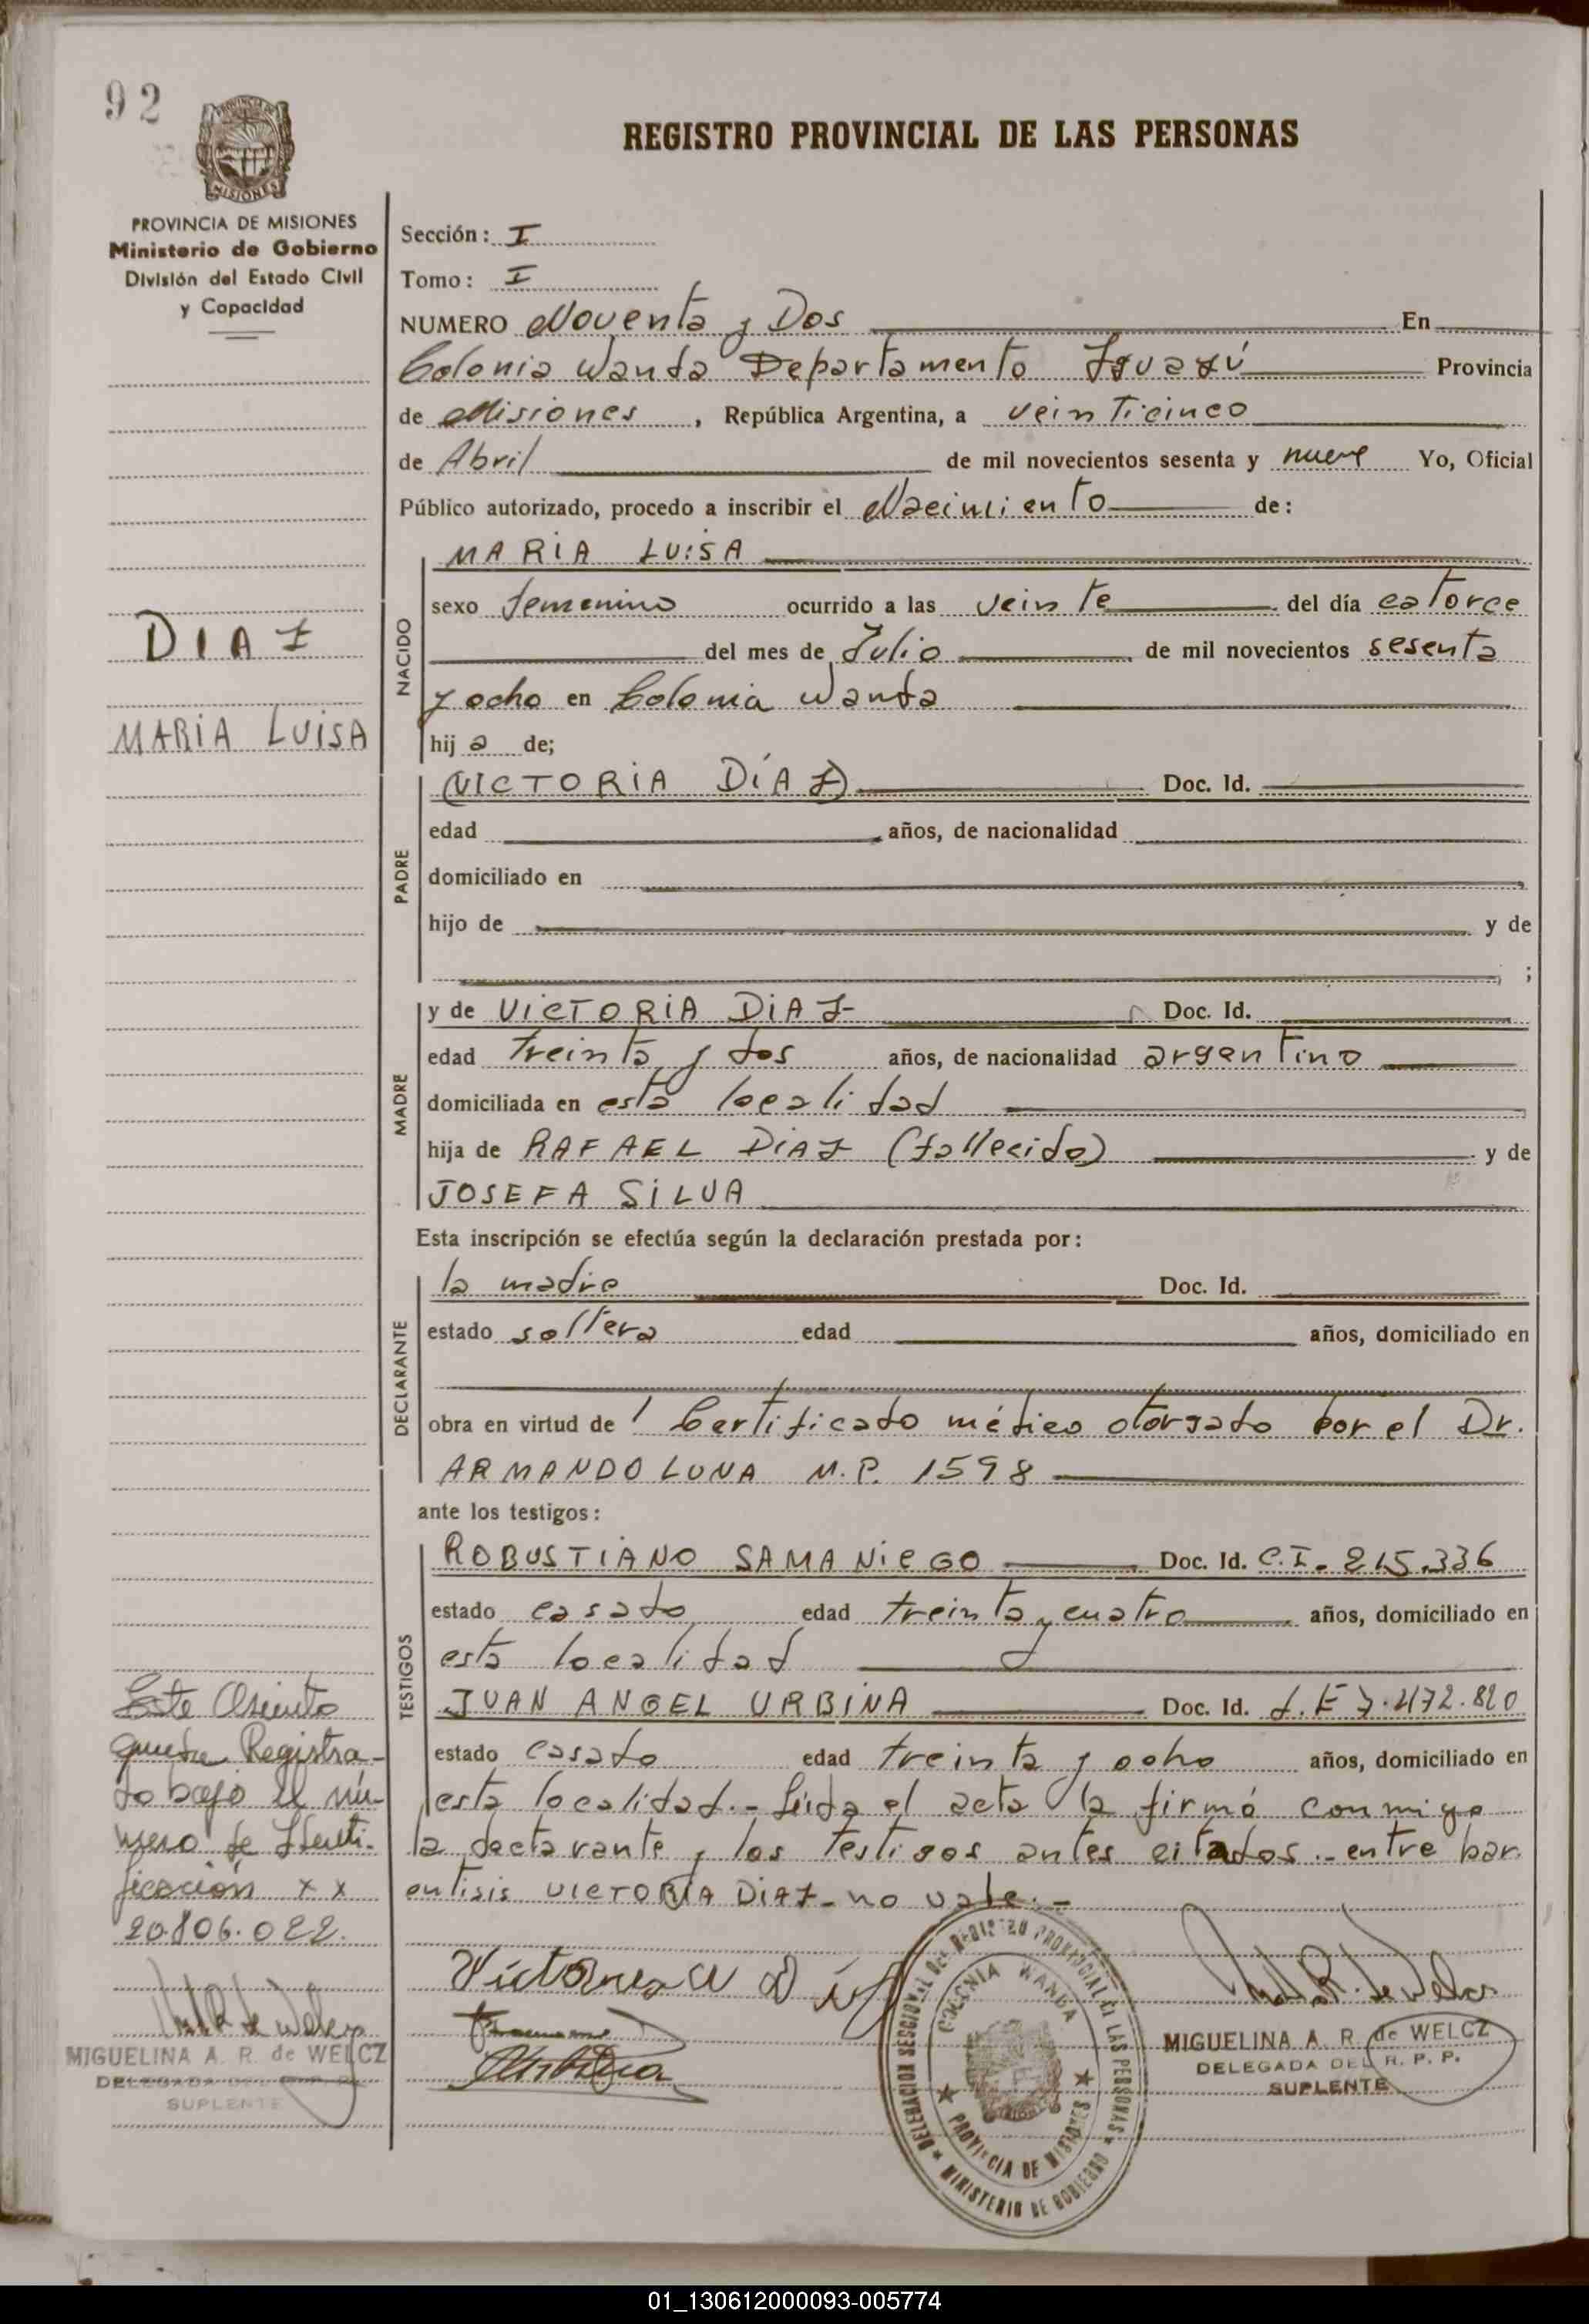 92
PROVINCIA DE
MISIONES
PROVINCIA DE MISIONES
Ministerio de Gobierno
División del Estado Civil
y Capacidad
DIAZ
MARIA LUISA
Este Asiento
queda Registra-
do bajo el nú-
mero de Identi-
ficación x x
20.806.022.
MIGUELINA A. R. de WELCZ
DELEGADA DEL R. P. P.
SUPLENTE
REGISTRO PROVINCIAL DE LAS PERSONAS
Sección: I
Tomo: I
NUMERO Noventa y Dos En
Colonia Wanda Departamento Iguazú Provincia
de Misiones, República Argentina, a veinticinco
de Abril de mil novecientos sesenta y nueve Yo, Oficial
Público autorizado, procedo a inscribir el Nacimiento de:
NACIDO
MARIA LUISA
sexo femenino ocurrido a las veinte del día catorce
del mes de Julio de mil novecientos sesenta
y ocho en Colonia Wanda
hija de;
PADRE
(VICTORIA DÍAZ) Doc. Id.
edad años, de nacionalidad
domiciliado en
hijo de y de
;
MADRE
y de VICTORIA DIAZ Doc. Id.
edad treinta y dos años, de nacionalidad argentino
domiciliada en esta localidad
hija de RAFAEL DIAZ (fallecido) y de
JOSEFA SILVA
Esta inscripción se efectúa según la declaración prestada por:
DECLARANTE
la madre Doc. Id.
estado soltera edad años, domiciliado en
obra en virtud de 1 Certificado médico otorgado por el Dr.
ARMANDO LUNA M.P. 1598
ante los testigos:
TESTIGOS
ROBUSTIANO SAMANIEGO Doc. Id. C.I. 215.336
estado casado edad treinta y cuatro años, domiciliado en
esta localidad
JUAN ANGEL URBINA Doc. Id. L.E 7.472.820
estado casado edad treinta y ocho años, domiciliado en
esta localidad.- Leída el acta la firmó conmigo
la declarante y los testigos antes citados.- entre par
entisis VICTORIA DIAZ - no vale.-
Victoria
DELEGACION SECCIONAL DEL REGISTRO PROVINCIAL DE LAS PERSONAS
COLONIA WANDA
PROVINCIA DE MISIONES
MINISTERIO DE GOBIERNO
MIGUELINA A. R. de WELCZ
DELEGADA DEL R. P. P.
SUPLENTE
01_130612000093-005774